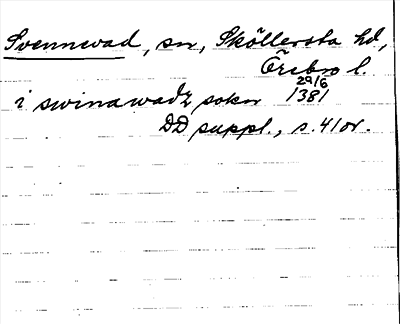 Svennevad, sn, Sköllersta hd,
Örebro l.
29/6
i swinawadz sokn 1381
DD suppl., s. 41 or.